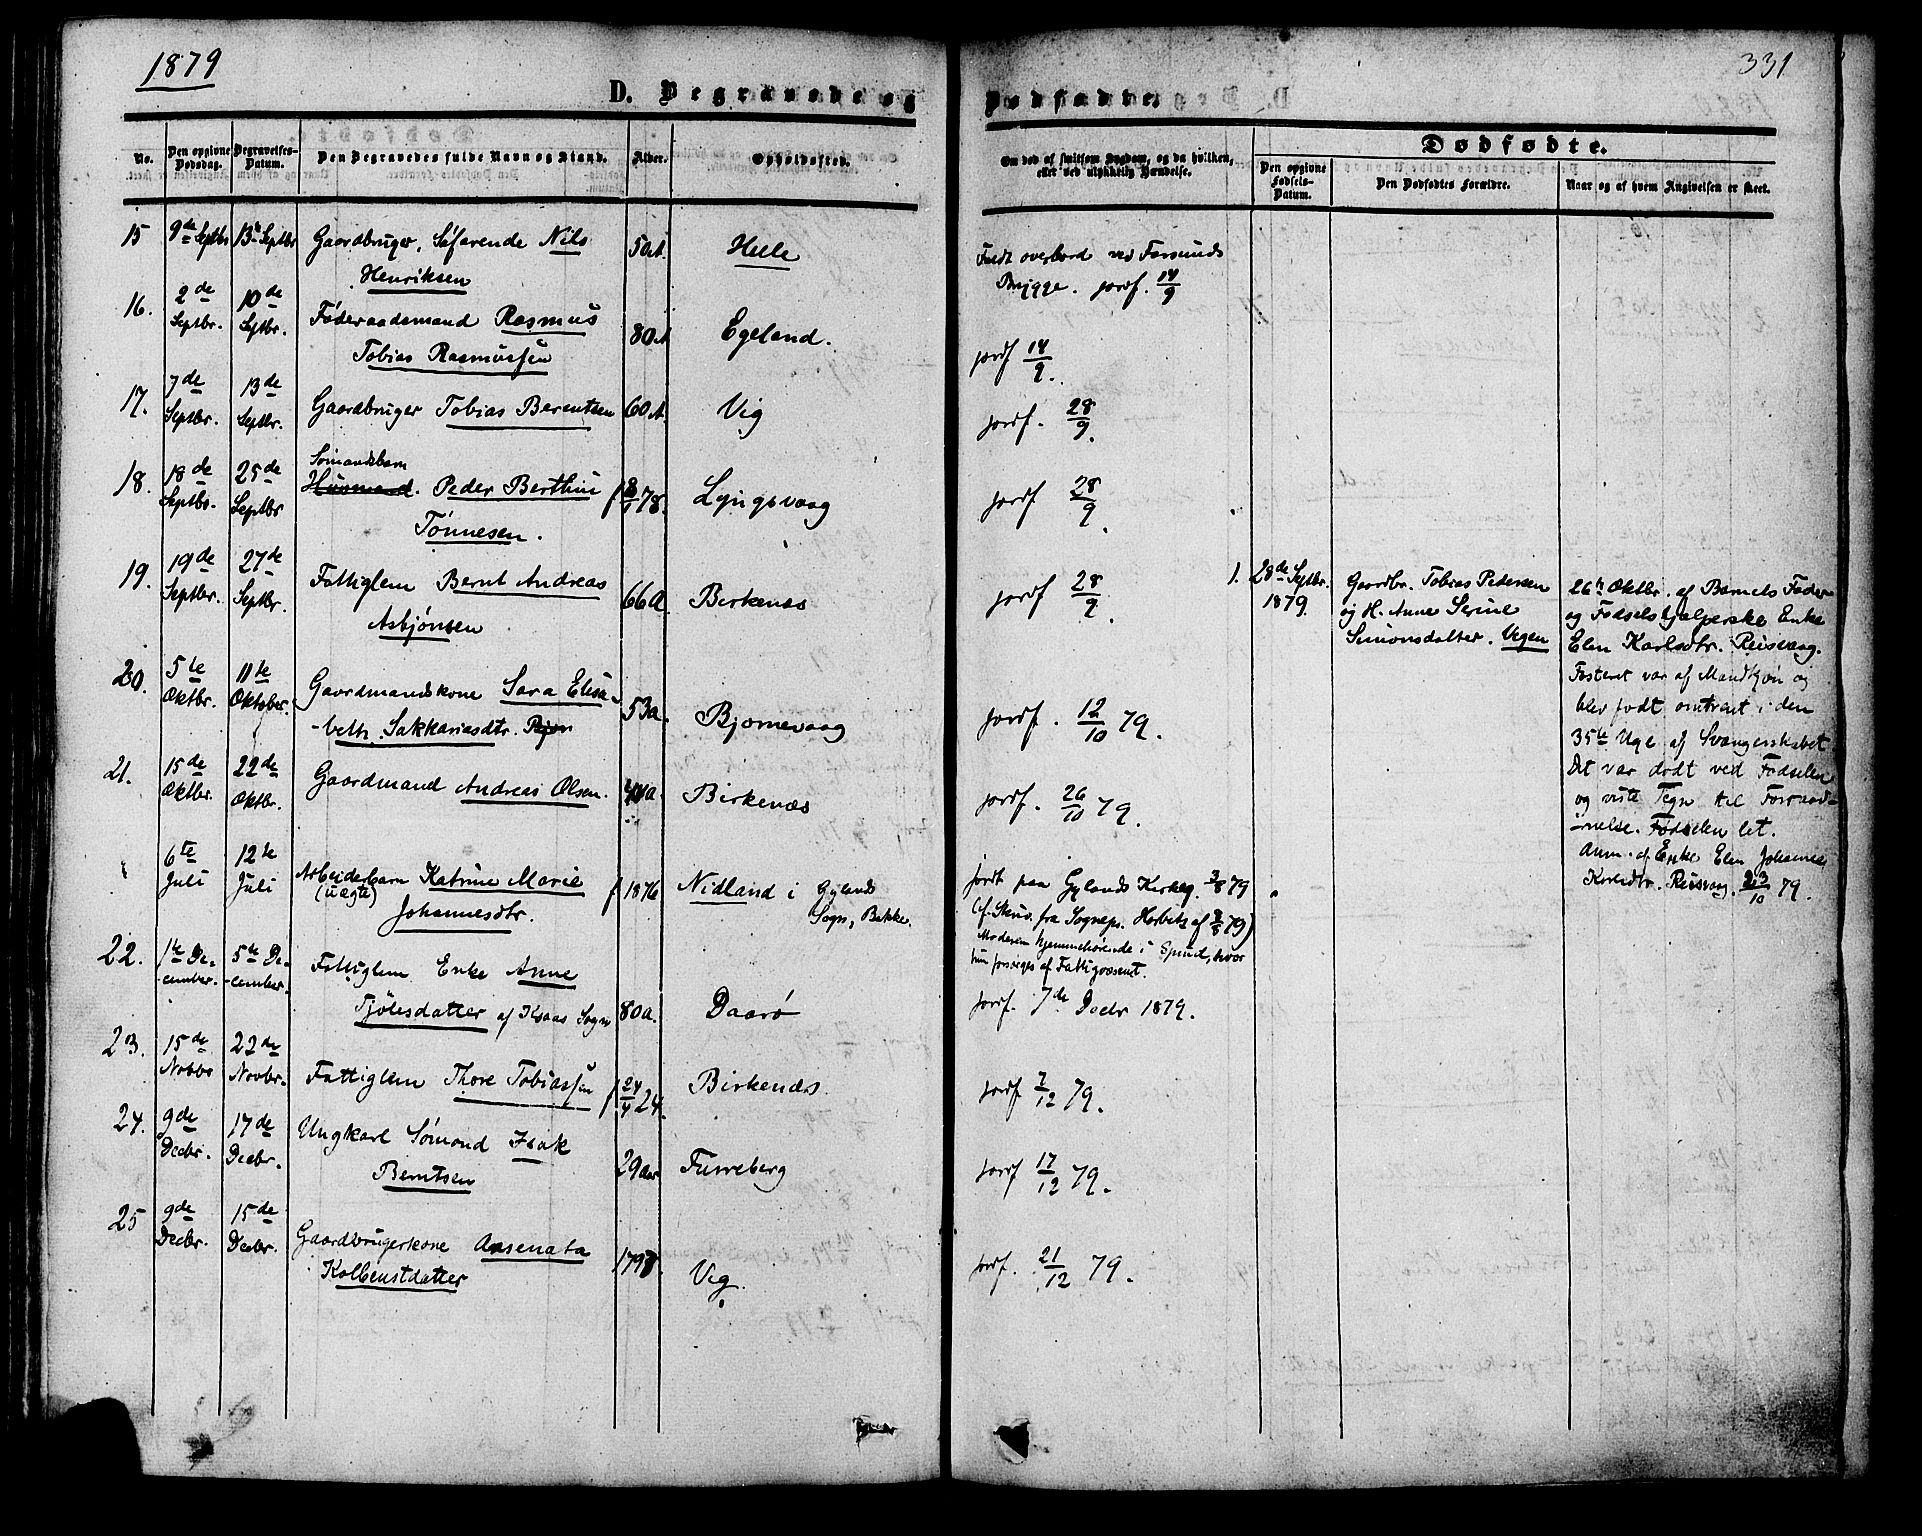 1879
331
D. Begravede og Dødfødte.
No. Den opgivne Dødsdag. Begravelses-Datum. Den Begravedes fulde Navn og Stand. Alder. Opholdssted. Om død af smitsom Sygdom, og da hvilken, eller ved ulykkelig Hændelse.
Dødfødte.
Den opgivne Fødsels-Datum. Den Dødfødtes Forældre. Naar og af hvem Angivelsen er skeet.
15 9de Septbr 13de Septbr Gaardbruger, Søfarende Nils 50 A. Heele Faldt overbord ved Farsunds
Henriksen Brygge. jordf. 14/9
16. 2de Septbr. 10de Septbr. Føderaadsmand Rasmus 80 A Egeland. jordf 14/9.
Tobias Rasmussen
17. 7de Septbr. 13de Septbr. Gaardbruger Tobias Berentsen 60 A. Vig jordf. 28/9.
18. 18de Septbr. 25de Septbr Sømandsbarn
Husmand. Peder Berthin f 8/1 78. Lyngsvaag jordf 28/9.
Tønnesen.
19. 19de Septbr. 27de Septbr. Fattiglem Bernt Andreas 66 A. Birkenæs jordf 28/9.
Asbjønsen
20. 5te Oktbr. 11te Oktober. Gaardmandskone Sara Elisa- 53 a. Bjørnevaag jordf. 12/10 79.
-beth Sakkariasdtr. Bjørn
21. 15de Oktbr. 22de Oktbr. Gaardmand Andreas Olsen. a. Birkenæs jordf. 26/10 79.
6te Juli 12te Juli Arbeiderbarn Katrine Marie f 1876 Nidland i Gylands jordf paa Gylands Kirkeg. 3/8 79
(uægte) Johannesdtr. Sogn, Bakke. (cf. Skriv. fra Sognepr. Horbets af 8/8 79)
Moderen hjemmehørende i Spind, hvor
hun forsørges af Fattigvæsenet.
22. 1te December. 5te December. Fattiglem Enke Anne 80 a. Daarø jordf. 7de Decbr 1879.
Tjølesdatter af Kvaas Sogn
23. 15de Novbr 22de Novbr. Fattiglem Thore Tobiassen f 24/4 24. Birkenæs. jordf 7/12 79.
24. 9de Decbr. 17de Decbr. Ungkarl Sømand Isak 29 aar Furreberg jordf 17/12 79.
Berntsen
25 9de Decbr. 15de Decbr. Gaardbrugerkone Assenata 1798. Vig. jordf. 21/12 79.
Kolbenstdatter
1. 28de Septbr. 1879. Gaardbr. Tobias Pedersen
og H. Anne Serine
Simonsdatter. Vegen
26te Oktbr. af Barnets Fader
og Fødselshjælperske Enke
Elen Karlsdtr. Reisvaag.
Fosteret var af Mandkjøn og
blev født omtrent i den
35te Uge af Svangerskabet
Det var dødt ved Fødselen
og viste Tegn til Forraad-
-nelse. Fødselen let.
Anm. af Enke Elen Johanne
Karlsdtr. Reisvaag. 23/10 79.